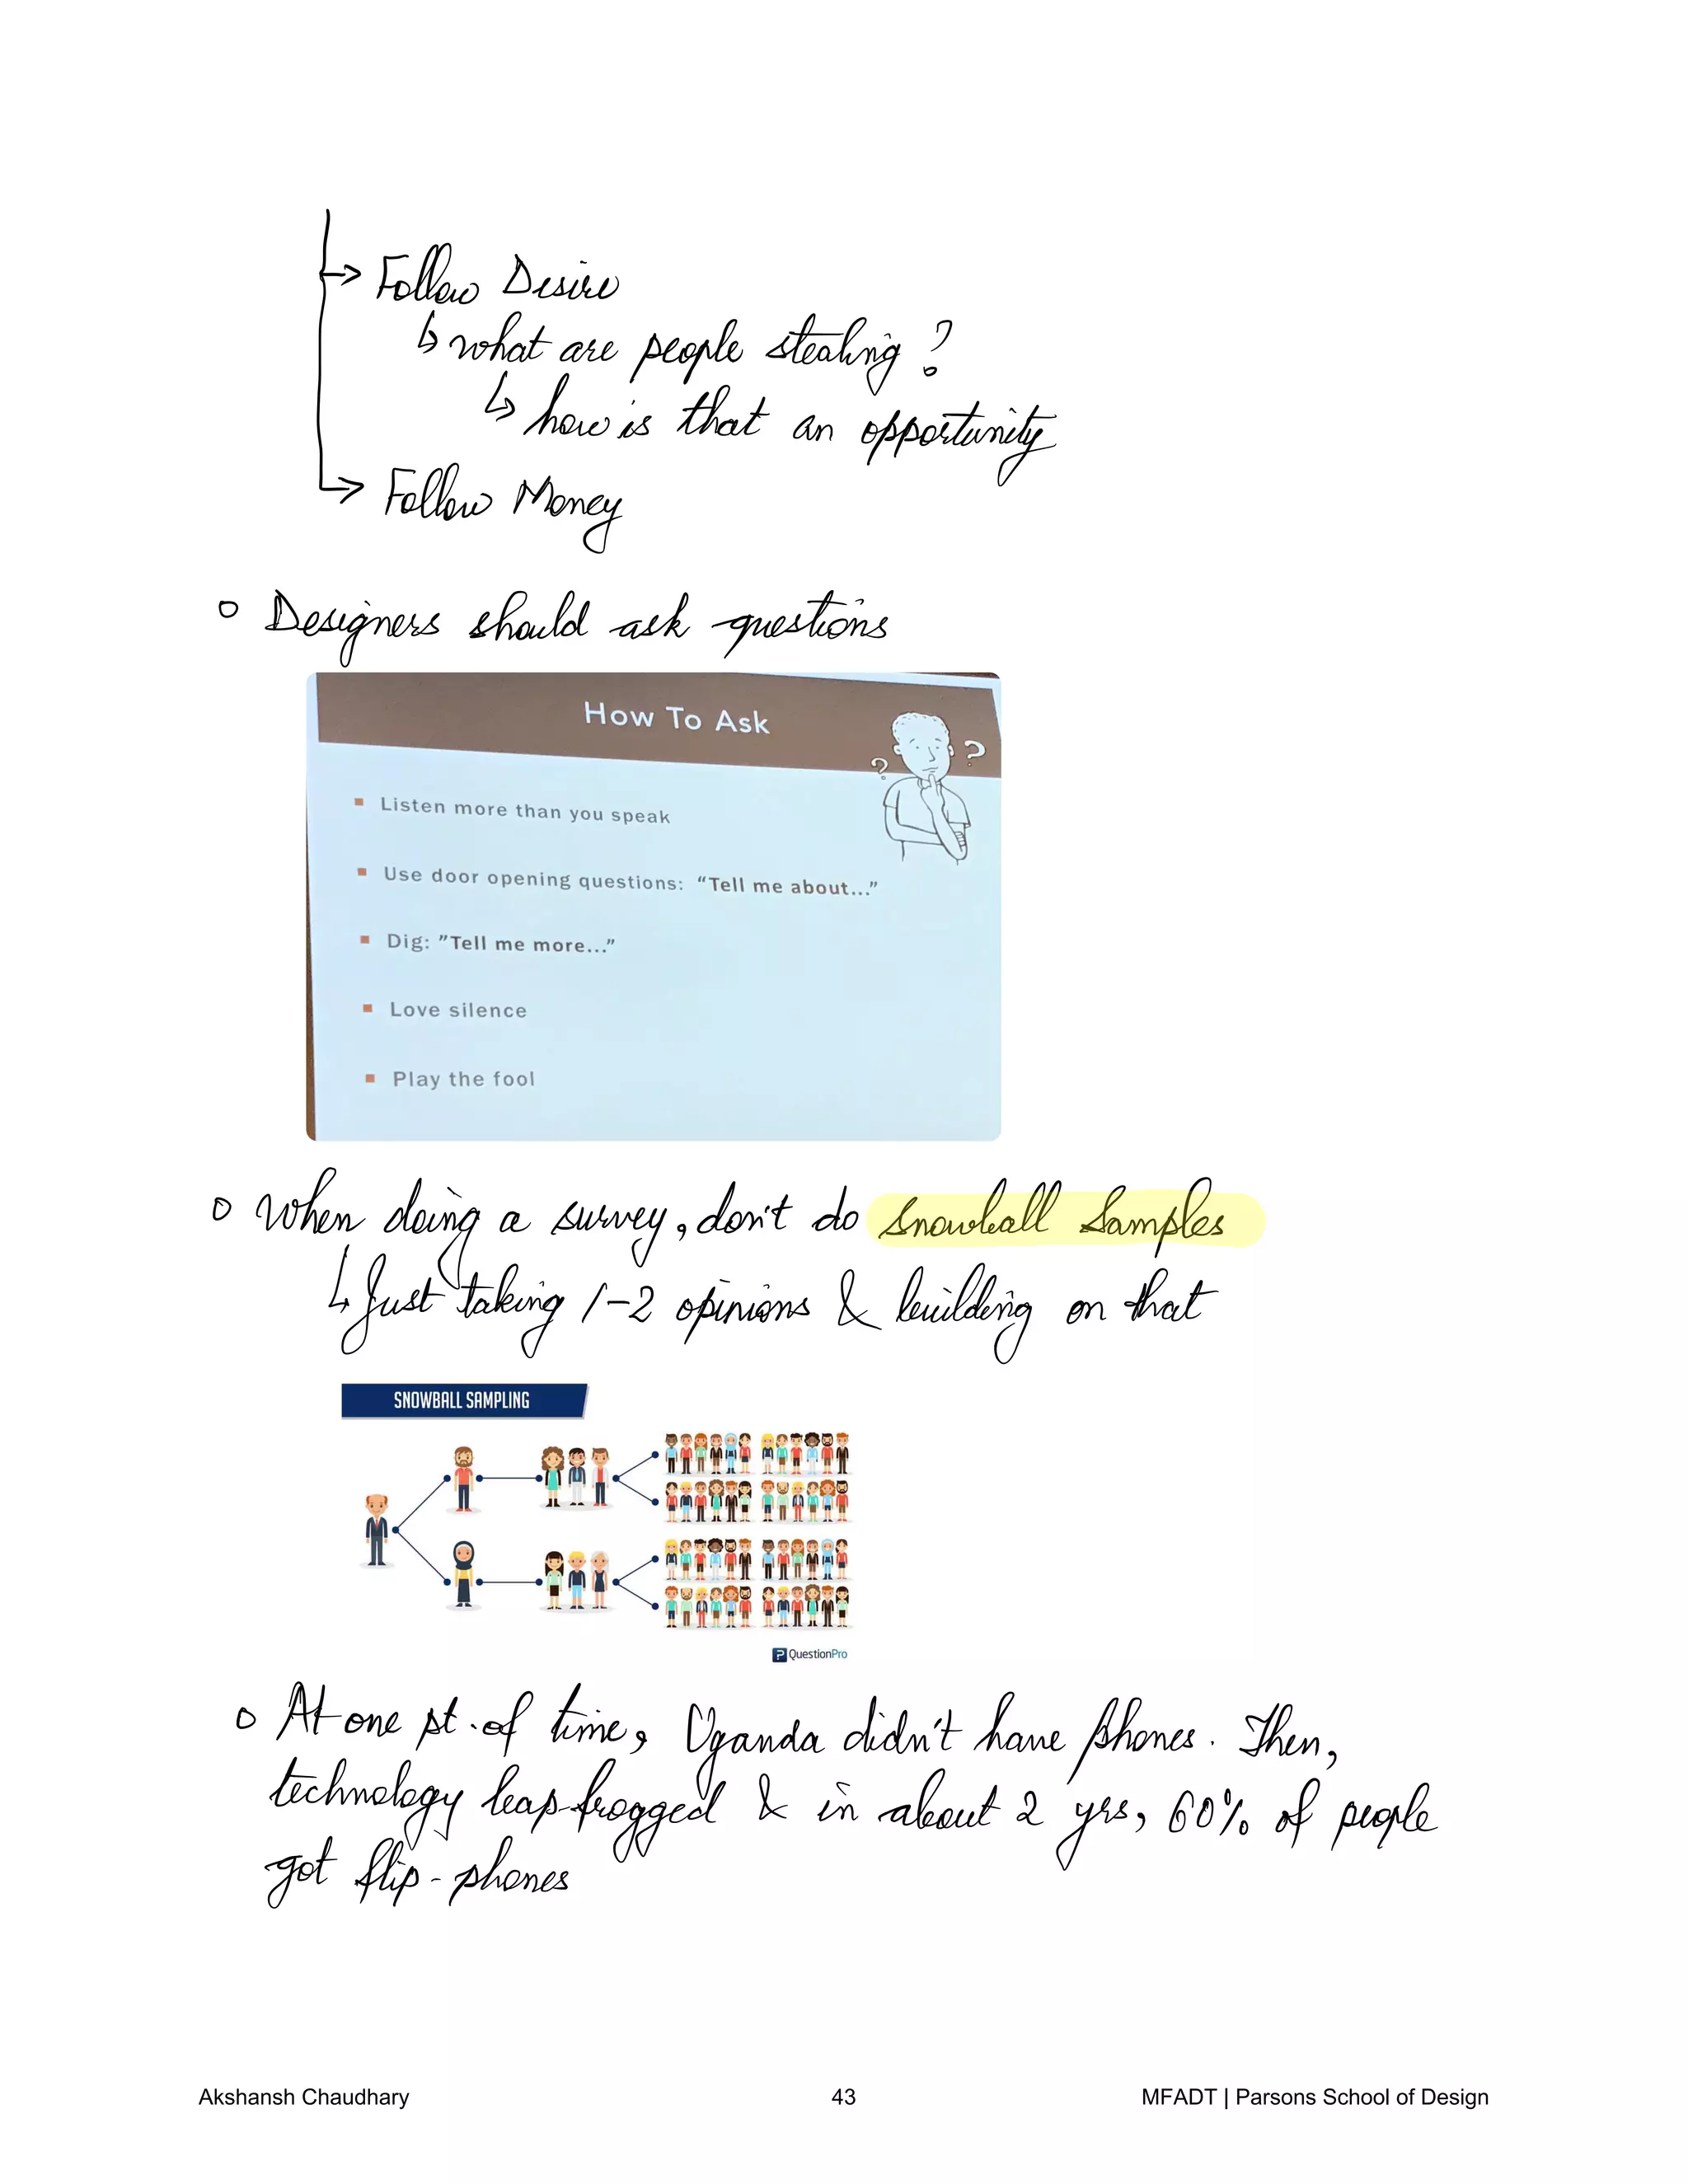 Follow Desire
what are people stealing?
how is that an opportunity
Follow Money
Designers should ask questions
How To Ask
? ?
Listen more than you speak
Use door opening questions: “Tell me about...”
Dig: ”Tell me more...”
Love silence
Play the fool
When doing a survey, don't do snowball samples
Just taking 1-2 opinions & building on that
SNOWBALL SAMPLING
QuestionPro
At one pt. of time, Uganda didn't have phones. Then,
technology leap-frogged & in about 2 yrs, 60% of people
got flip-phones
Akshansh Chaudhary 43 MFADT | Parsons School of Design